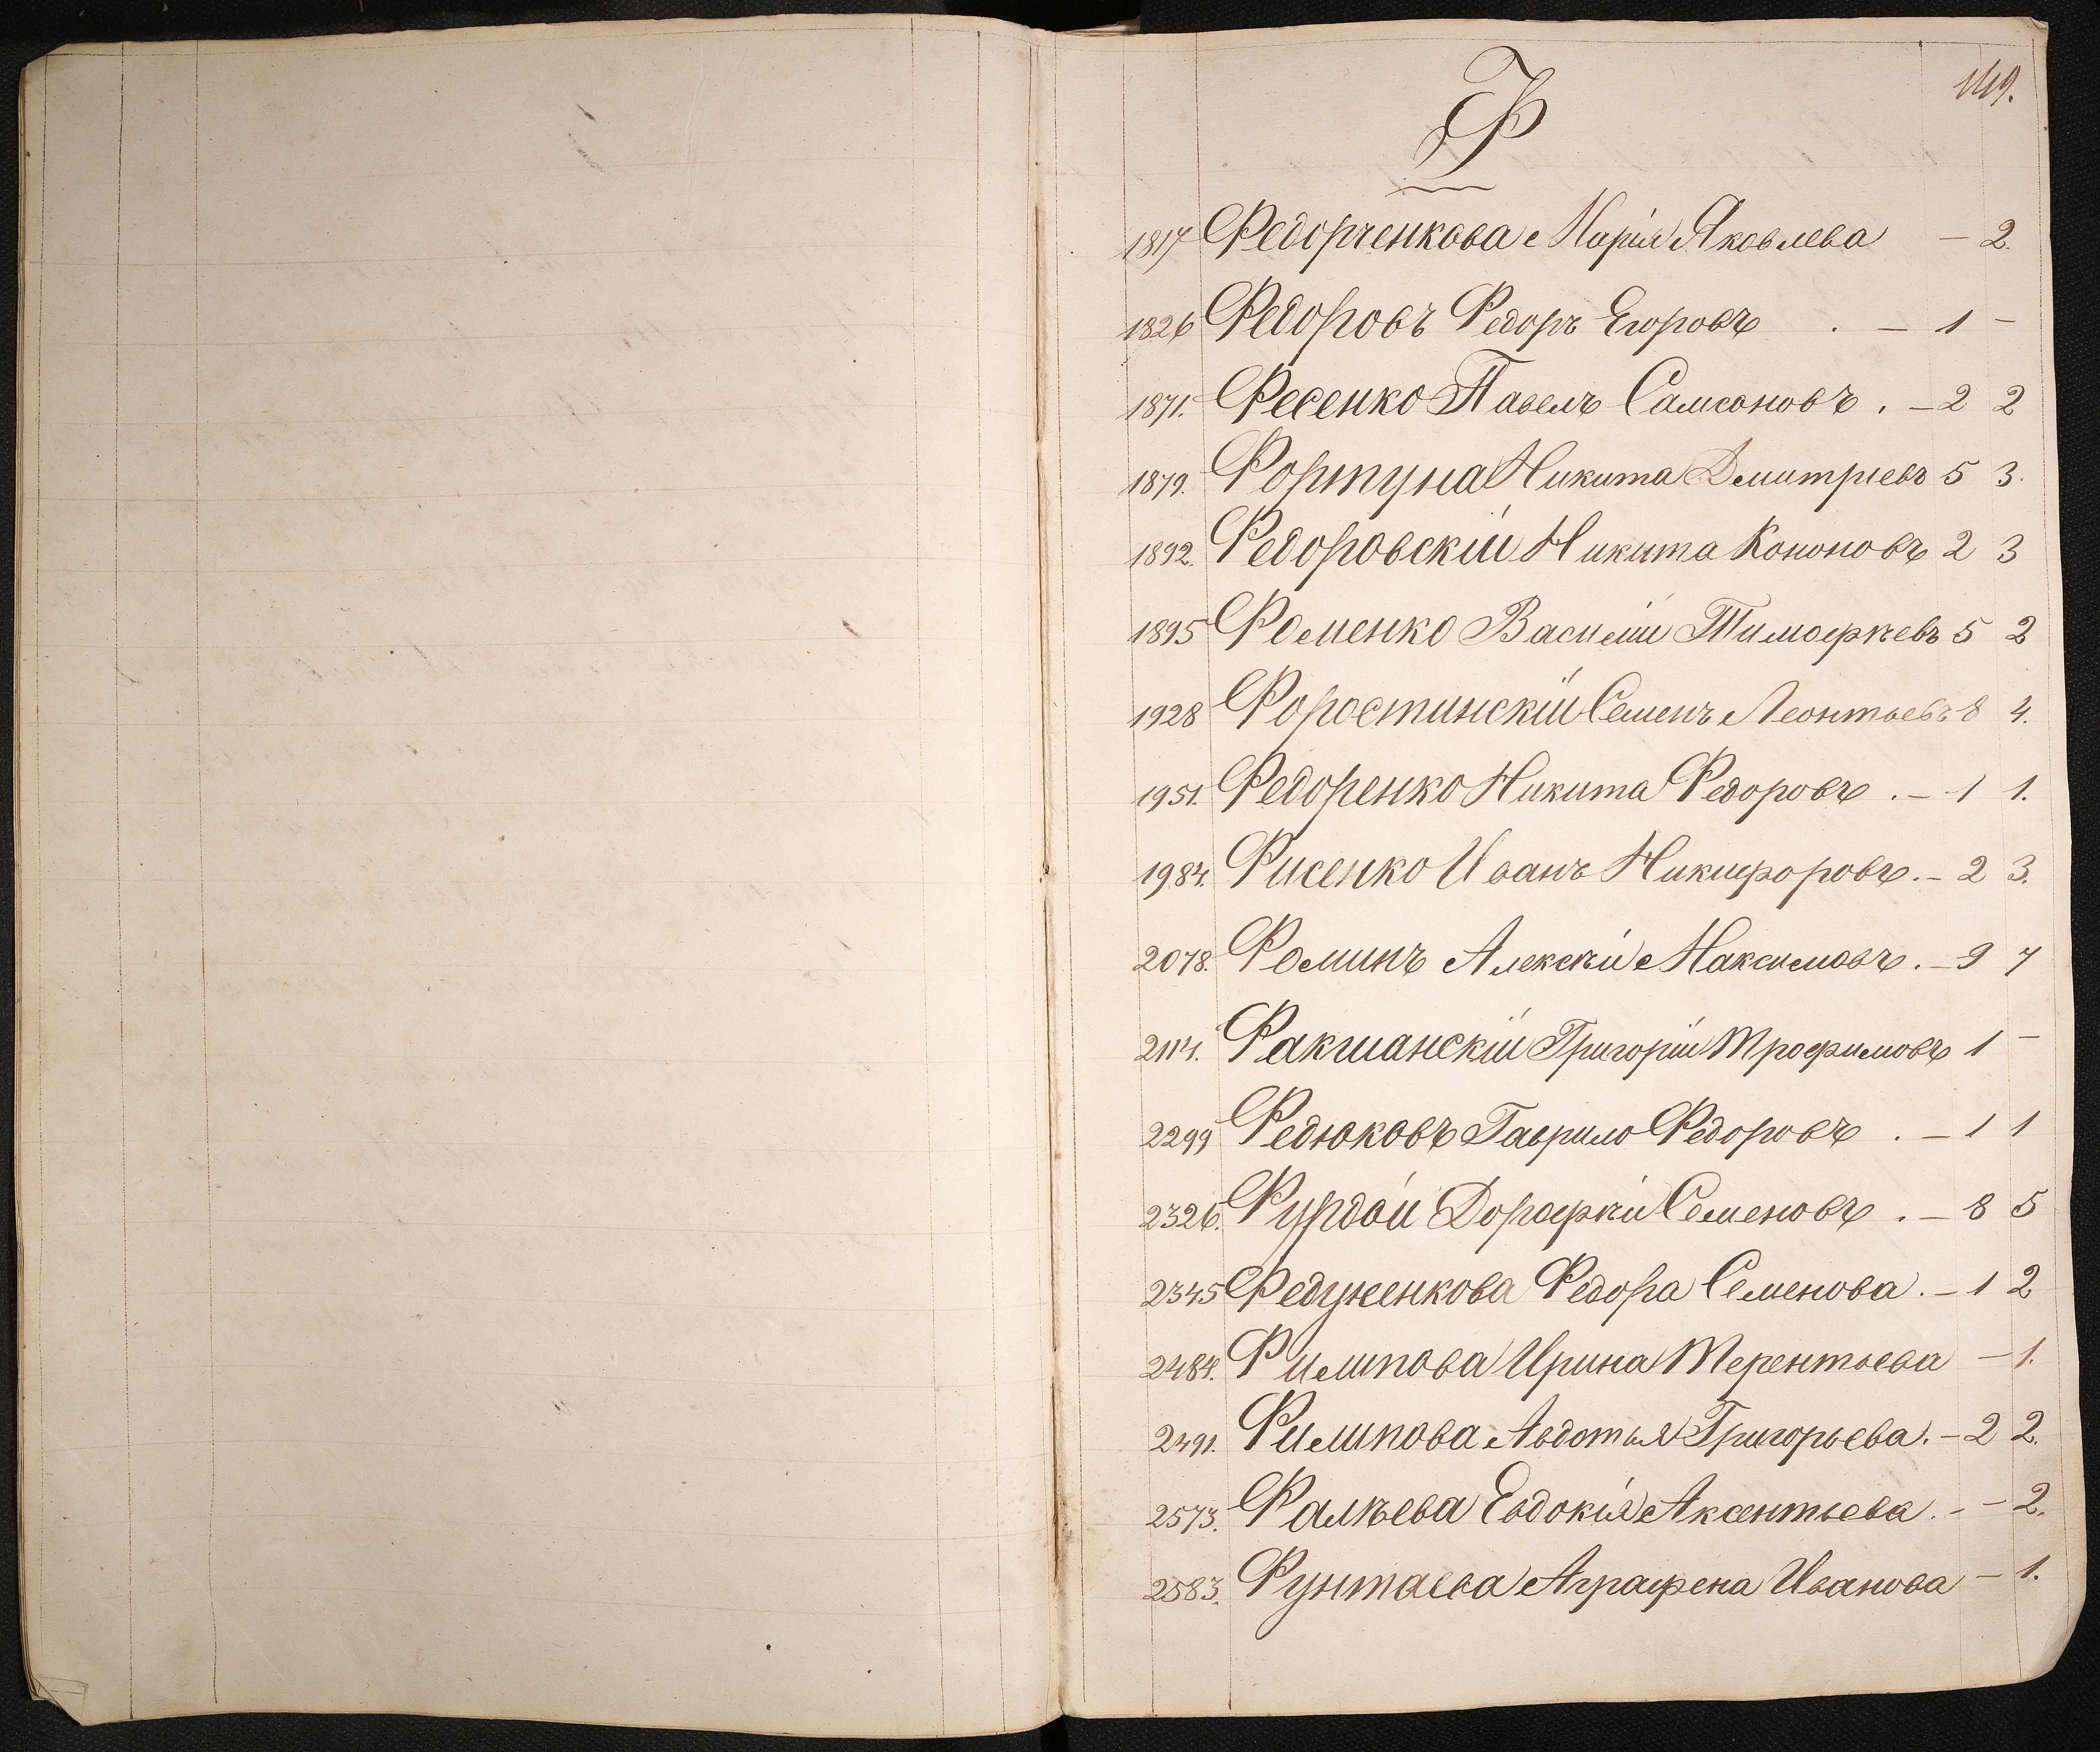 149.
Ф
1817 Федорченкова Марія Яковлева — 2.
1826 Федоровъ Федоръ Егоровъ . — 1 —
1871. Фесенко Павелъ Самсоновъ . — 2 2
1879. Фортуна Никита Дмитріевъ 5 3.
1892. Федоровскій Никита Кононовъ 2 3
1895 Фоменко Василій Тимофѣевъ 5 2
1928 Форостинскій Семенъ Леонтьевъ 8 4.
1951. Федоренко Никита Федоровъ . — 1 1.
1984. Фисенко Иванъ Никифоровъ . — 2 3.
2078. Фоминъ Алексѣй Максимовъ . — 9 7
2114. Факшанскій Григорій Трофимовъ 1 —
2299 Федюковъ Гаврило Федоровъ . — 1 1
2326. Фурдой Дорофѣй Семеновъ . — 8 5
2345 Федуненкова Федора Семенова . — 1 2
2484. Филипова Ирина Терентьева — 1.
2491. Филипова Авдотья Григорьева . — 2 2.
2573. Фалѣева Евдокія Аксентьева . — — 2.
2583. Фунтаева Аграфена Иванова — 1.